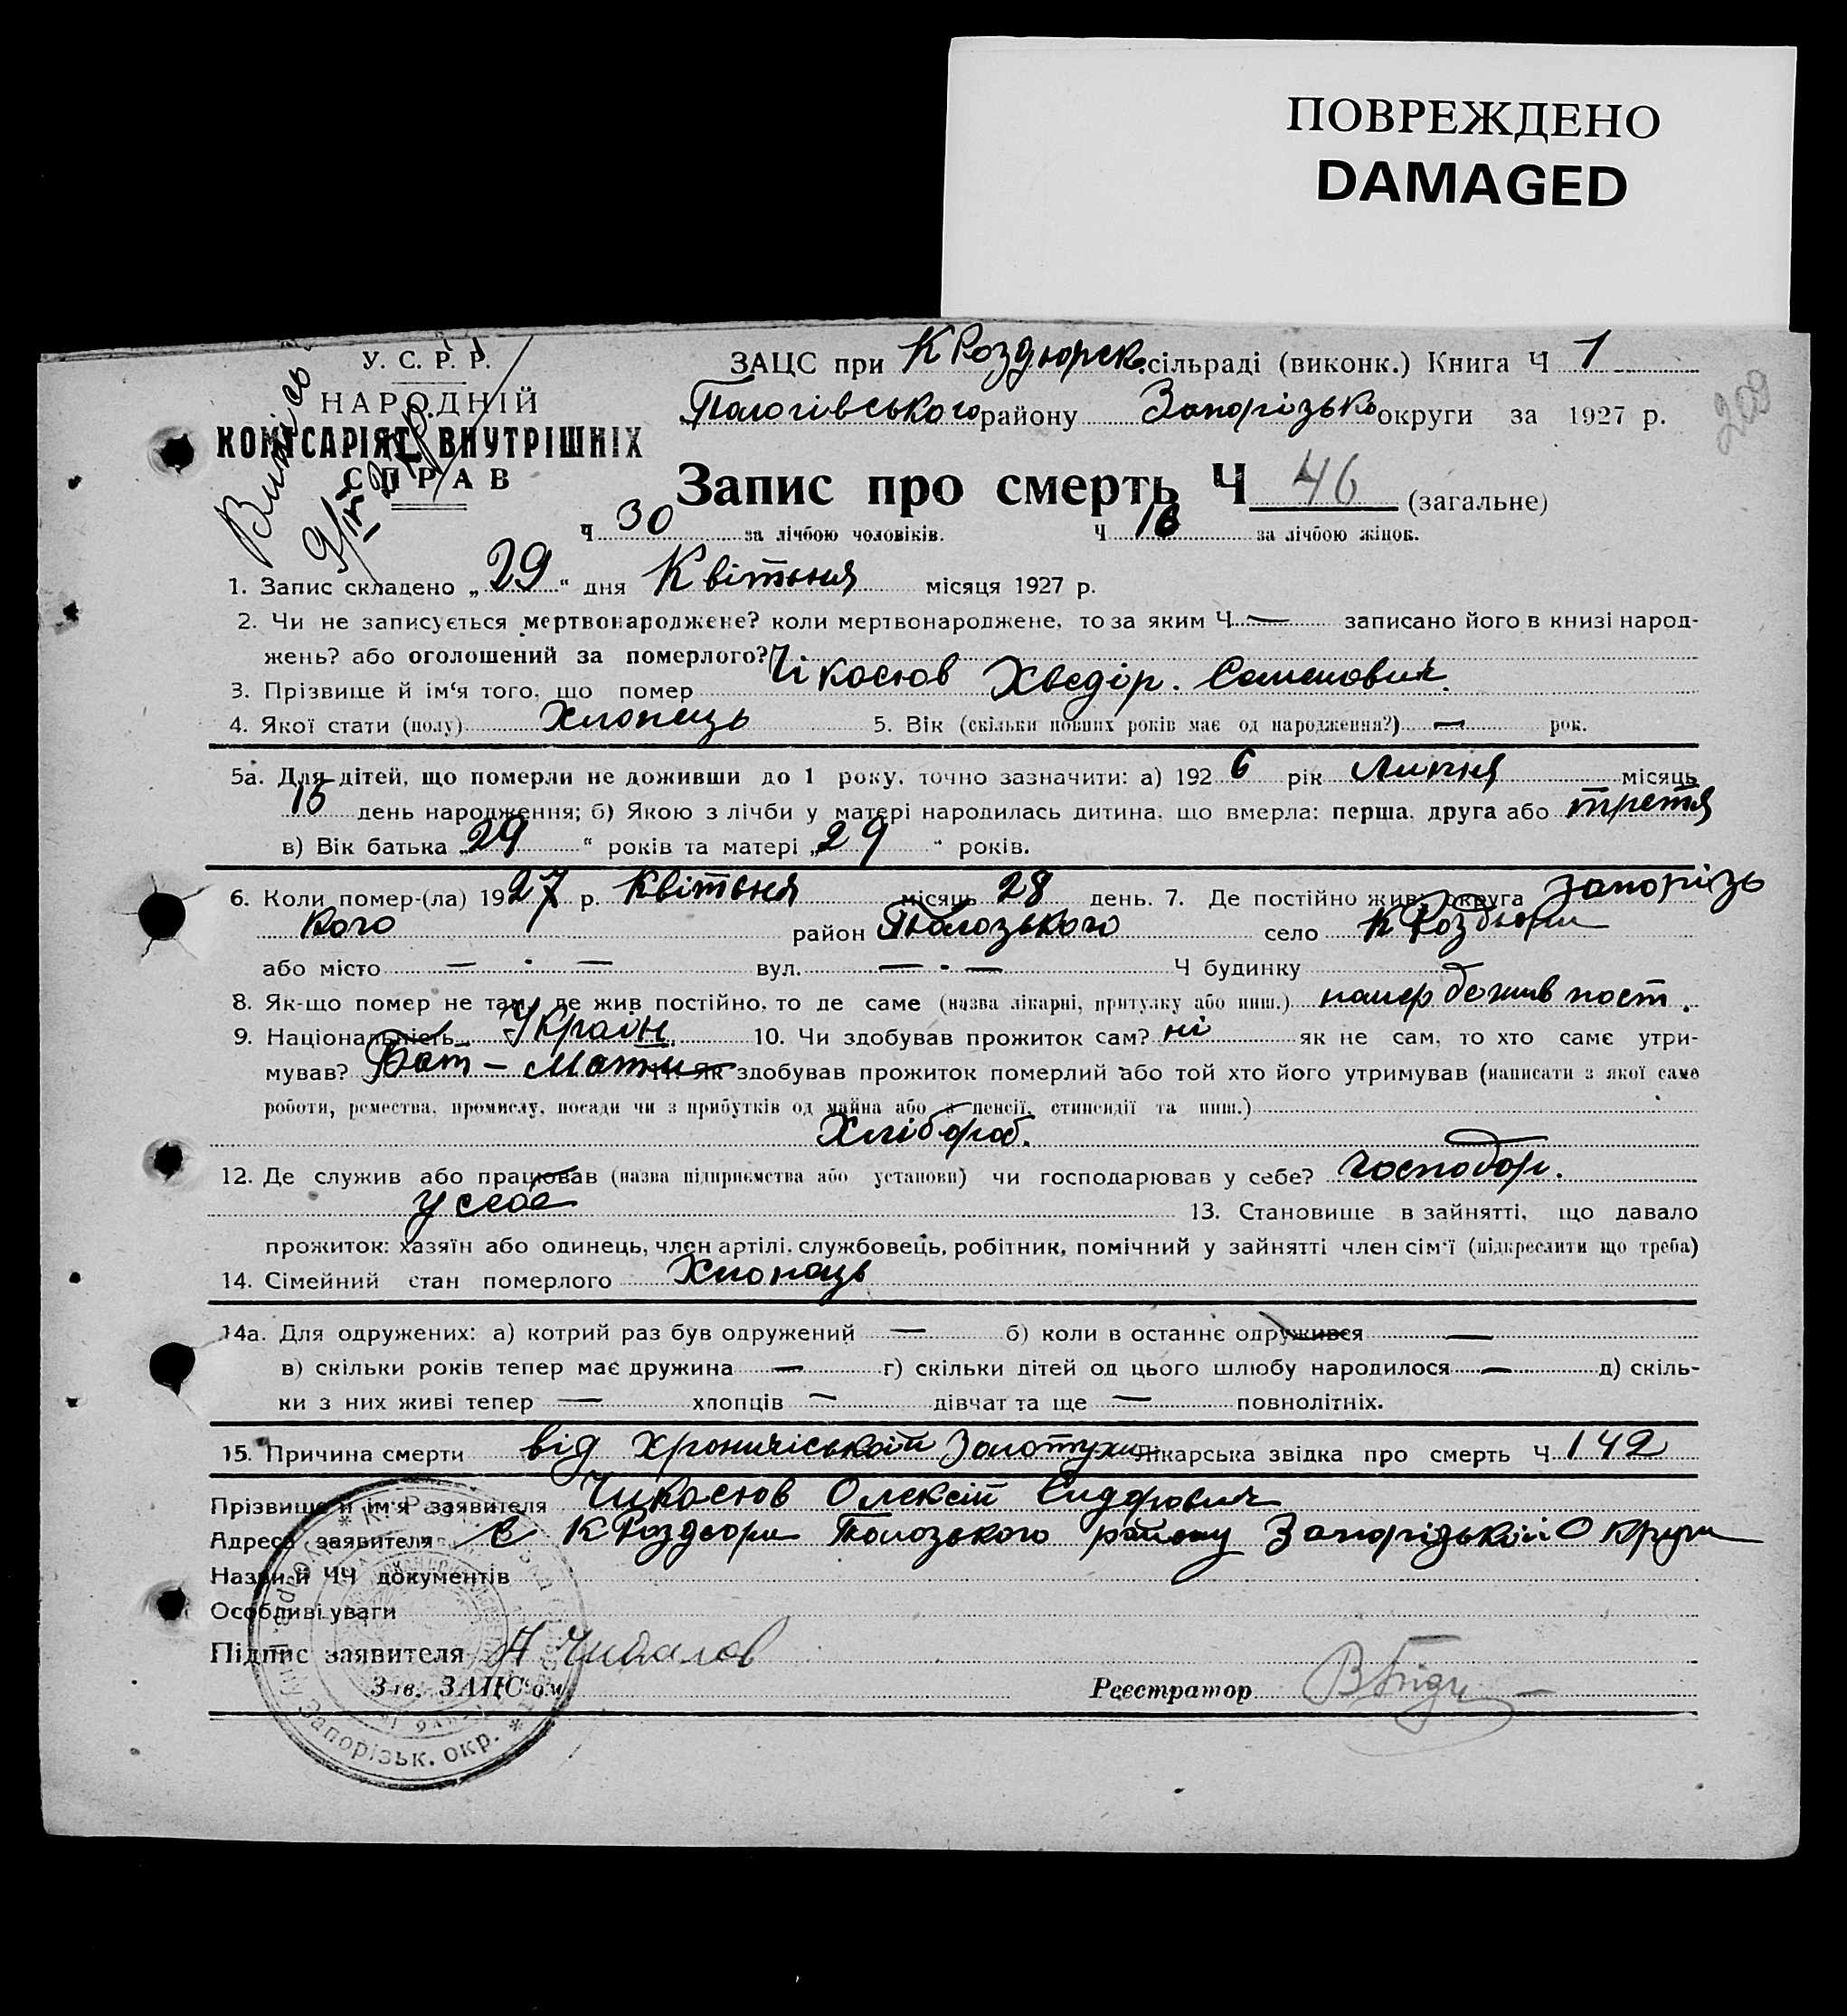 ПОВРЕЖДЕНО
DAMAGED
У. С. Р. Р.
НАРОДНІЙ
КОМІСАРІЯТ ВНУТРІШНІХ
СПРАВ
209
ЗАЦС при К Роздюрск. сільраді (виконк.) Книга Ч 1
Пологівського району Запорізько округи за 1927 р.
Запис про смерть Ч 46 (загальне)
Ч 30 за лічбою чоловіків. Ч 16 за лічбою жінок.
1. Запис складено „ 29 “ дня Квітьня місяця 1927 р.
2. Чи не записується мертвонароджене? коли мертвонароджене, то за яким Ч — записано його в книзі народ-
жень? або оголошений за померлого?
3. Прізвище й ім‘я того, що помер Хведір.
4. Якої стати (полу) Хлопець 5. Вік (скільки повних років має од народження?) — рок.
5а. Для дітей, що померли не доживши до 1 року, точно зазначити: а) 192 6 рік Липня місяць
15 день народження; б) Якою з лічби у матері народилась дитина, що вмерла: перша, друга або третя
в) Вік батька „ 29 “ років та матері „ 29 “ років.
6. Коли помер-(ла) 1927 р. Квітьня місяць 28 день. 7. Де постійно жив: округа Запорізь
кого район Полозького село К Роздюри
або місто — · — вул. — · — Ч будинку
8. Як-що помер не там, де жив постійно, то де саме (назва лікарні, притулку або инш.) помер де жив пост.
9. Національність Україн. 10. Чи здобував прожиток сам? ні як не сам, то хто саме утри-
мував? Бат — Мати 11. Як здобував прожиток померлий або той хто його утримував (написати з якої саме
роботи, ремества, промислу, посади чи з прибутків од майна або з пенсії, стипендії та инш.)
Хлібороб.
12. Де служив або працював (назва підприємства або установи) чи господарював у себе? Господар.
у себе 13. Становище в зайнятті, що давало
прожиток: хазяїн або одинець, член артілі, службовець, робітник, помічний у зайнятті член сім‘ї (підкреслити що треба)
14. Сімейний стан померлого Хлопець
14а. Для одружених: а) котрий раз був одружений — б) коли в останнє одружився —
в) скільки років тепер має дружина — г) скільки дітей од цього шлюбу народилося — д) скіль-
ки з них живі тепер — хлопців — дівчат та ще — повнолітніх.
15. Причина смерти від Золотухи Лікарська звідка про смерть Ч 142
Прізвище й ім‘я заявителя Олексій Сидорович
Адреса заявителя с К Роздори Полозького району Запорізької Округи
Назви й ЧЧ документів
Особливі уваги
Підпис заявителя А
Зав. ЗАЦС‘ом Реєстратор
Запорізьк. окр.